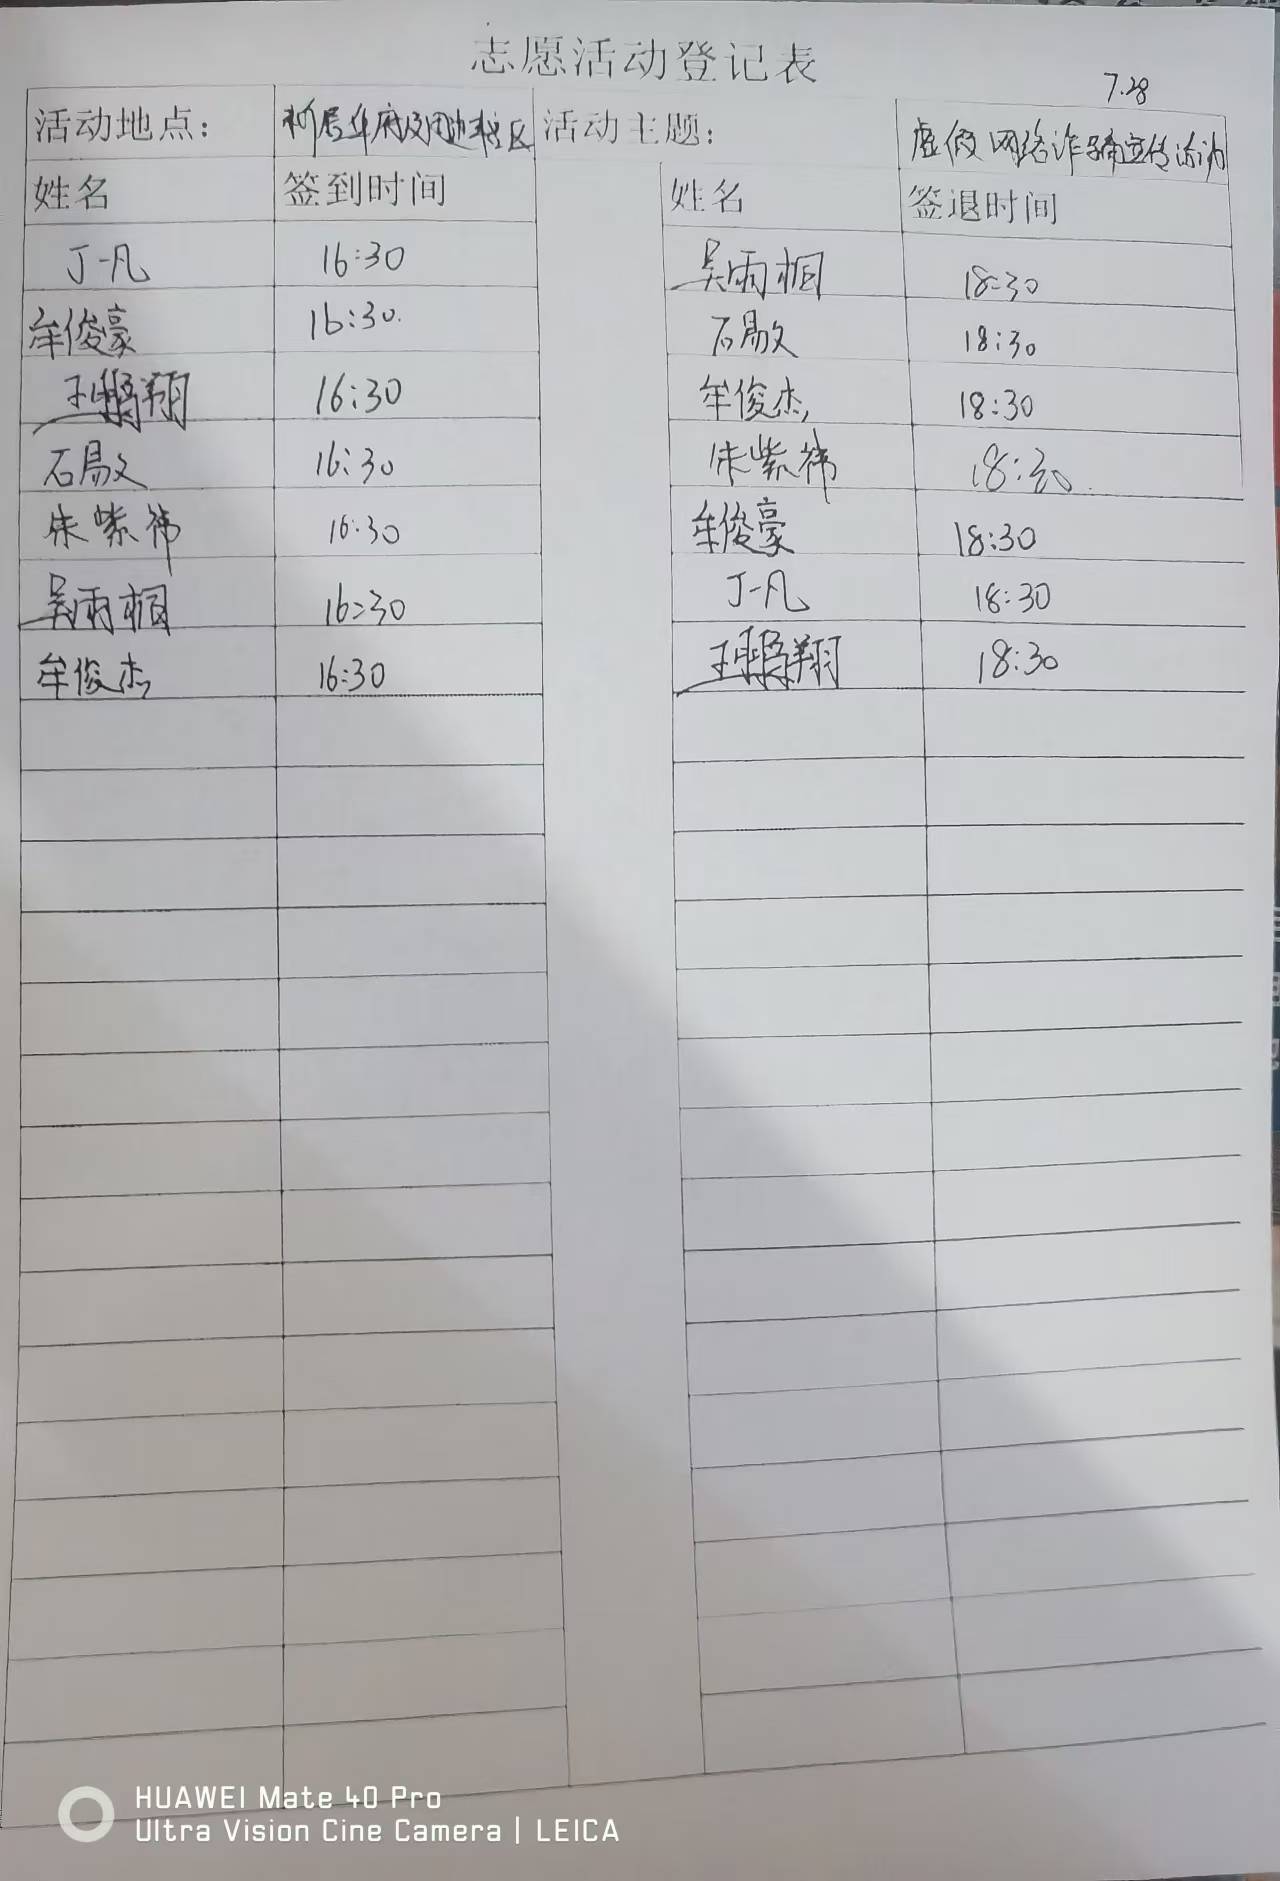 志愿活动登记表
7.28
活动地点: 及周边社区 活动主题: 虚假网络诈骗宣传活动
姓名 签到时间 姓名 签退时间
丁一凡 16:30 吴雨桐 18:30
牟俊豪 16:30. 石勗文 18:30
王鹏翔 16:30 牟俊杰 18:30
石勗文 16:30 朱紫祎 18:30
朱紫祎 16:30 牟俊豪 18:30
吴雨桐 16:30 丁一凡 18:30
牟俊杰 16:30 王鹏翔 18:30
HUAWEI Mate 40 Pro
Ultra Vision Cine Camera | LEICA